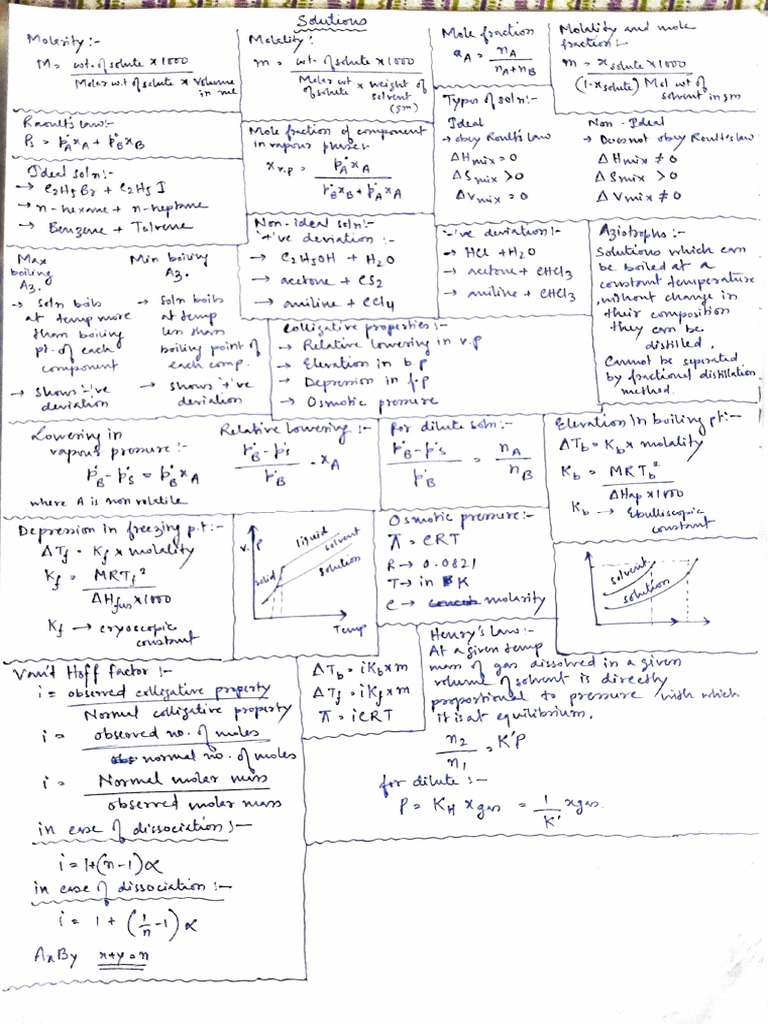 Solutions
Molarity :-
M = wt. of solute × 1000 / Molar wt. of solute × volume in ml
Molality :
m = wt. of solute × 1000 / Molar wt of solute × weight of solvent (gm)
Mole fraction
xA = nA / nA+nB
Molality and mole
fraction :-
m = xsolute × 1000 / (1-xsolute) Mol wt of solvent in gm
Raoult's law :-
Ps = p°A xA + p°B xB
Mole fraction of component
in vapour phase :-
xv.p = p°A xA / p°B xB + p°A xA
Types of soln :-
Ideal
→ obey Roult's law
ΔHmix = 0
ΔSmix > 0
ΔVmix = 0
Non-Ideal
→ Does not obey Roult's law
ΔHmix ≠ 0
ΔSmix > 0
ΔVmix ≠ 0
Ideal soln :-
→ C2H5Br + C2H5I
→ n-hexane + n-heptane
→ Benzene + Toluene
Non-ideal soln :-
'+'ve deviation :-
→ C2H5OH + H2O
→ acetone + CS2
→ aniline + CCl4
'-'ve deviation :-
→ HCl + H2O
→ acetone + CHCl3
→ aniline + CHCl3
Aziotrophs :-
Solutions which can
be boiled at a
constant temperature
, without change in
their composition
they can be
distilled.
Cannot be separated
by fractional distillation
method.
Max
boiling
Az.
→ Soln boils
at temp more
than boiling
pt. of each
component
→ shows '-'ve
deviation
Min boiling
Az.
→ Soln boils
at temp
less than
boiling point of
each comp.
→ shows '+'ve
deviation
Colligative properties :-
→ Relative lowering in v.p
→ Elevation in b.p
→ Depression in f.p
→ Osmotic pressure
Lowering in
vapour pressure :-
p°B - p°s = p°B xA
where A is non volatile
Relative lowering :-
p°B - p°s / p°B = xA
For dilute soln :-
p°B - p°s / p°B = nA / nB
Elevation in boiling pt :-
ΔTb = Kb × molality
Kb = MRTb² / ΔHvap × 1000
Kb → Ebulliscopic
constant
Depression in freezing p.t :-
ΔTf = Kf × molality
Kf = MRTf² / ΔHfus × 1000
Kf → cryoscopic
constant
V.P
liquid
solvent
solid
solution
Temp
Osmotic pressure :-
π = CRT
R → 0.0821
T → in K
C → molarity
solvent
solution
Van't Hoff factor :-
i = observed colligative property / Normal colligative property
i = observed no. of moles / normal no. of moles
i = Normal molar mass / observed molar mass
in case of dissociation :-
i = 1+(n-1)α
in case of dissociation :-
i = 1 + (1/n - 1)α
AxBy x+y=n
ΔTb = iKb × m
ΔTf = iKf × m
π = iCRT
Henry's Law :-
At a given temp
mass of gas dissolved in a given
volume of solvent is directly
proportional to pressure with which
it is at equilibrium.
n2 / n1 = K'P
for dilute :-
P = KH xgas = 1/K' xgas.